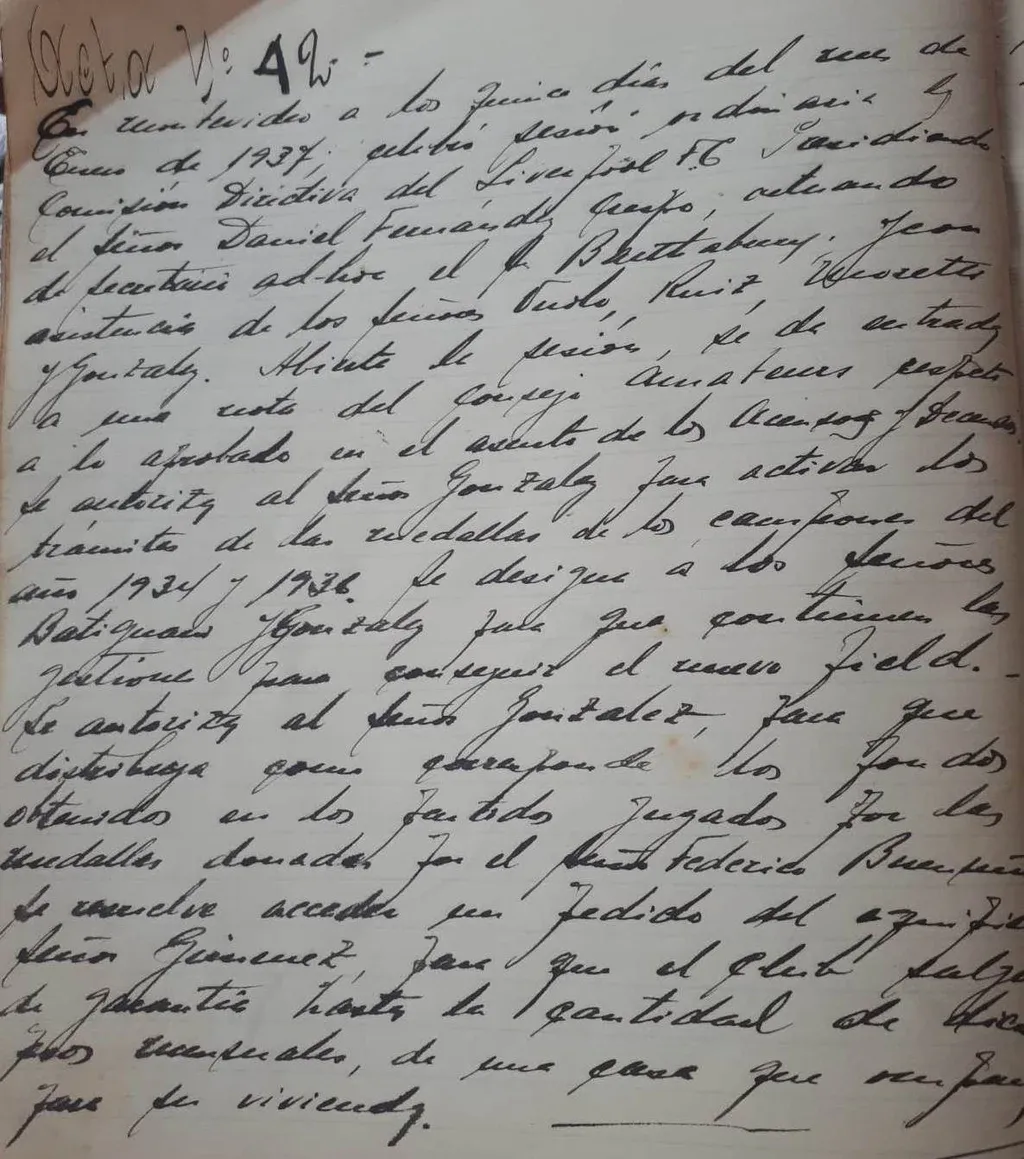 Acta Nº 42 -
En montevideo a los quince días del mes de
Enero de 1937, celebró sesión ordinaria la
Comisión Directiva del Liverpool F.C Presidiendo
el señor Daniel Fernández Crespo, actuando
de secretario ad-hoc el Sr. y con
asistencia de los señores Ruiz,
y Gonzalez. Abierta la sesión, se da entrada
a una nota del Consejo Amateurs respecto
a lo aprobado en el asunto de los Acensos y Decensos.
Se autoriza al señor Gonzalez para activar los
trámites de las medallas de los campeones del
año 1934 y 1936. Se designa a los señores
y Gonzalez para que continuen las
gestiones para conseguir el nuevo field. -
Se autoriza al señor Gonzalez, para que
distribuya como corresponde los fondos
obtenidos en los partidos jugados por las
medallas donadas por el señor Federico
Se resuelve acceder un pedido del
señor Gimenez, para que el club salga
de garantía hasta la cantidad de
pesos mensuales, de una casa que
para su vivienda.